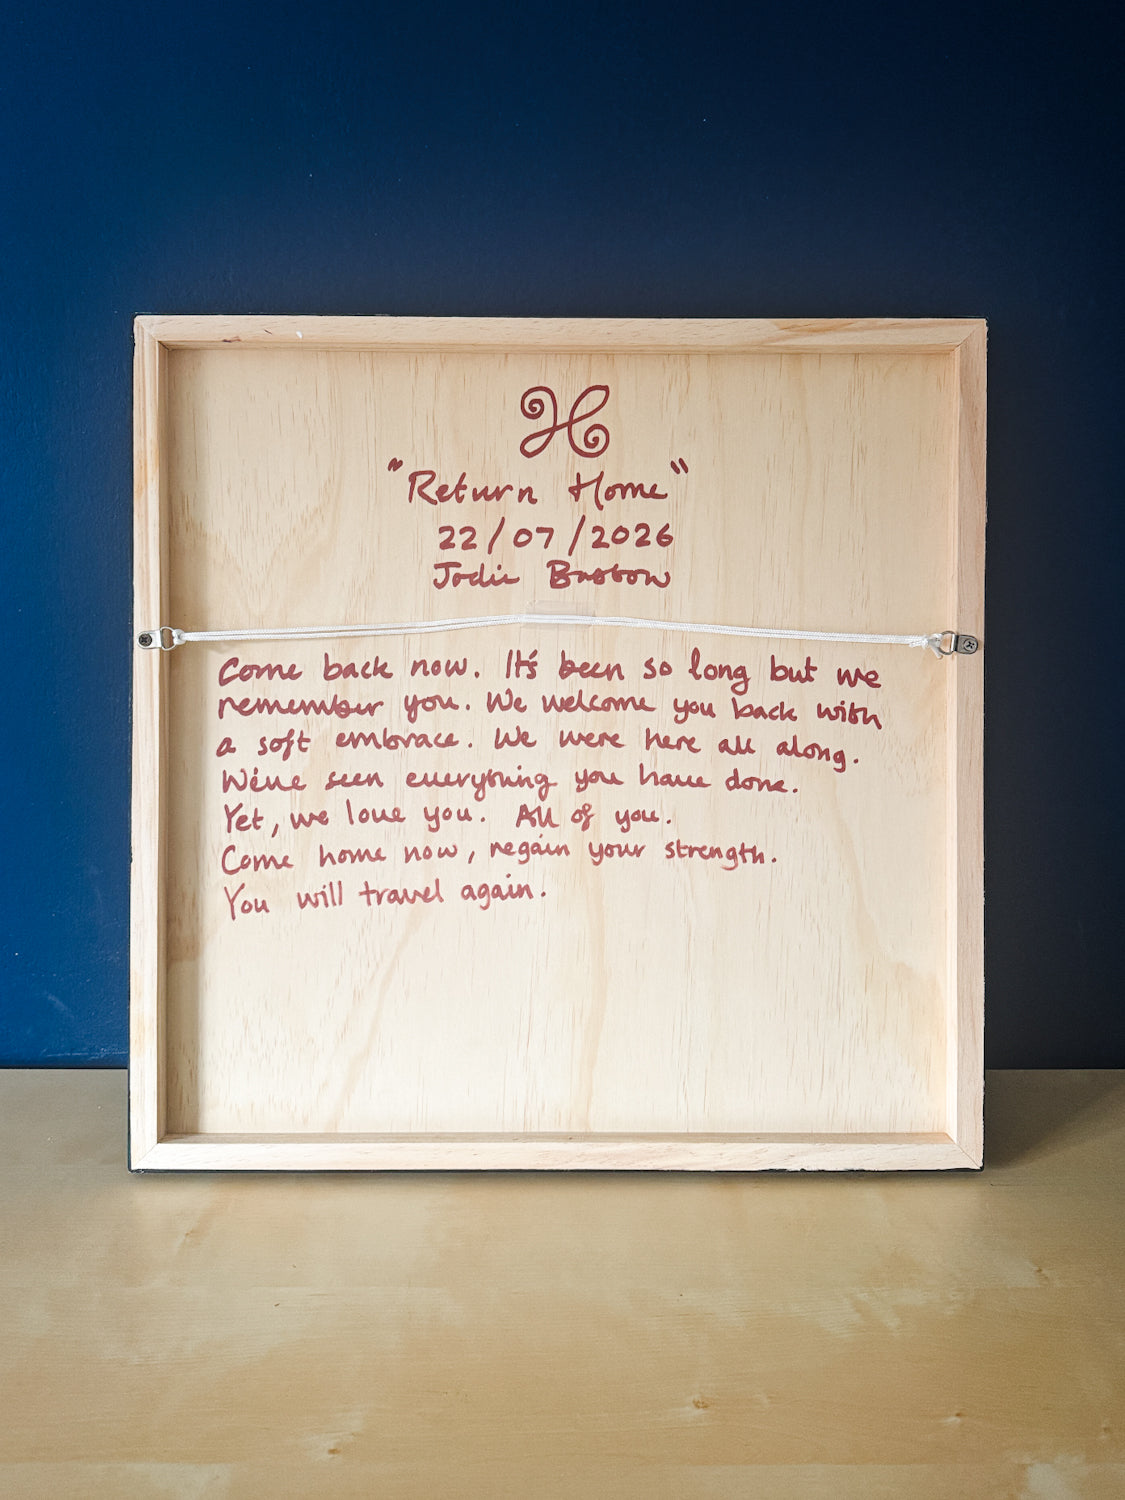 "Return Home"
22/07/2026
Jodie
Come back now. It's been so long but we
remember you. We welcome you back with
a soft embrace. We were here all along.
We've seen everything you have done.
Yet, we love you. All of you.
Come home now, regain your strength.
You will travel again.